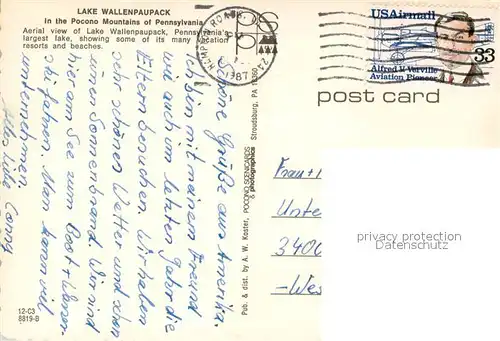 LAKE WALLENPAUPACK
In the Pocono Mountains of Pennsylvania
Aerial view of Lake Wallenpaupack, Pennsylvania's
largest lake, showing some of its many vacation
resorts and beaches.
HAMPTON ROADS, VA
1987
USAirmail
Alfred V. Verville
Aviation Pioneer
33
post card
Schöne Grüße aus Amerika.
Ich bin mit meinem Freund
wie auch im letzten Jahr die
Eltern besuchen. Wir haben
sehr schönes Wetter und schon
einen Sonnenbrand. Wir sind
hier am See zum Boot + Wasser-
ski fahren. Man kann viel
unternehmen.
Alles Liebe Conny
Pub. & dist. by A. W. Koster, POCONO SCENICARDS & photographics Stroudsburg, PA 18360
Frau +
Unte
3400
-Wes
privacy protection
Datenschutz
12-C3
8819-B